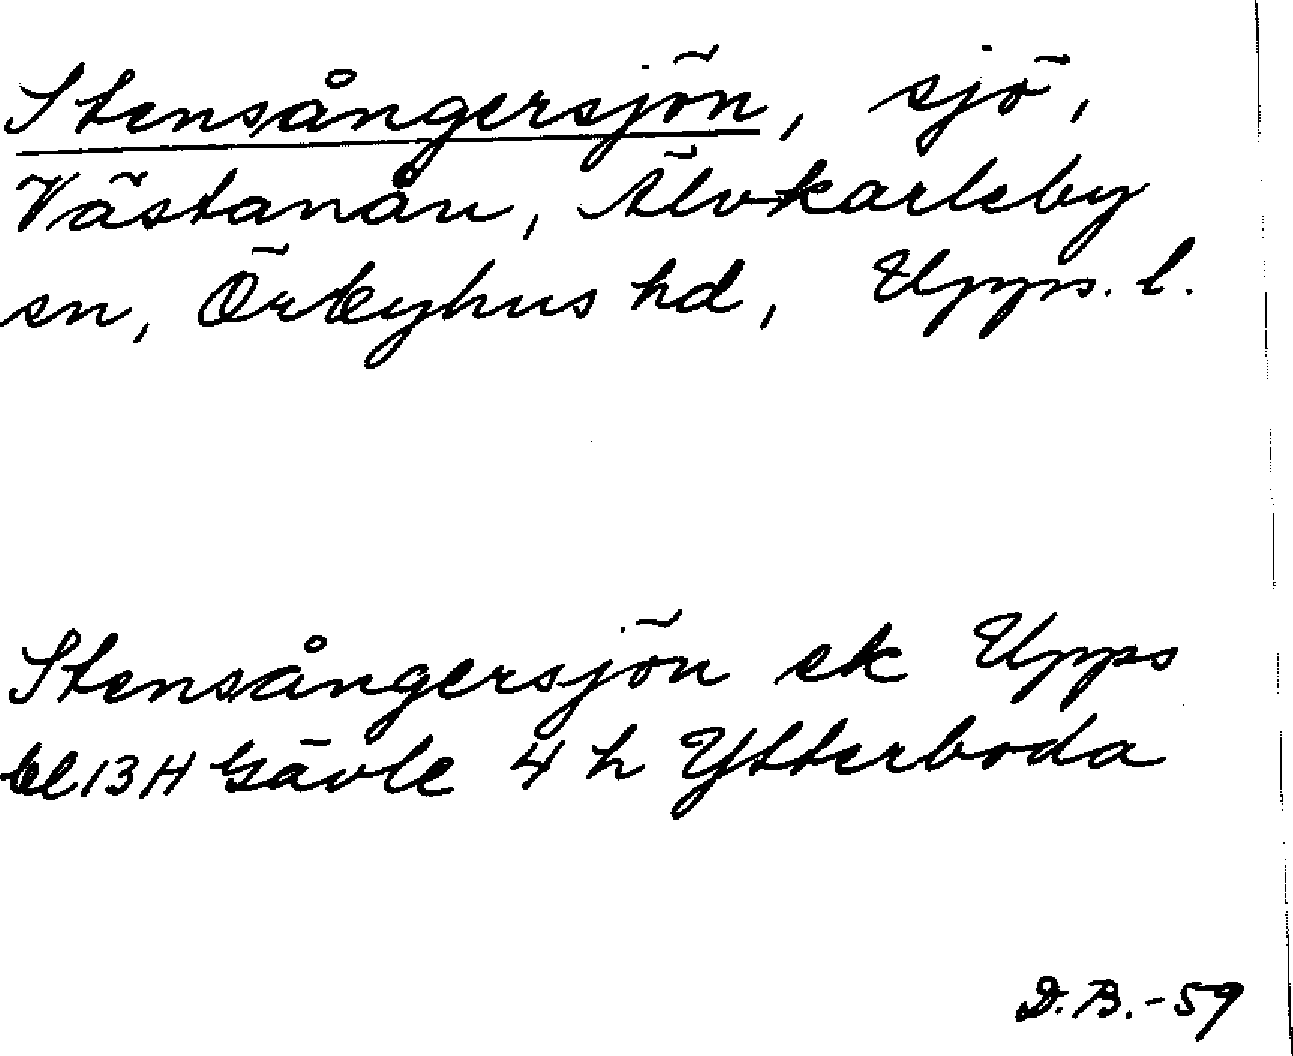 Stensångersjön, sjö,
Västanån, Älvkarleby
sn, Örbyhus hd, Upps. l.
Stensångersjön ek Upps
bl 13 H Gävle 4 h Ytterboda
D.B.-59